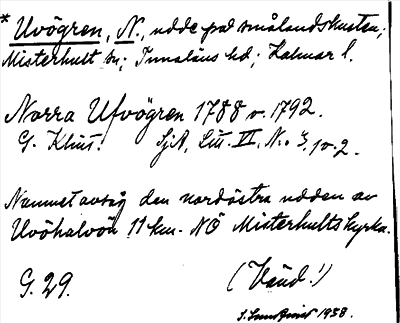 * Uvögren, N., udde på smålandskusten;
Misterhult sn; Tunaläns hd; Kalmar l.
Norra Ufvögren 1788 o. 1792.
G. Klint. SjA, Litt. VI, N:o 3, 1 o. 2.
Namnet avsåg den nordöstra udden av
Uvöhalvön 11 km. NÖ Misterhults kyrka.
G. 29. (Vänd!)
1938.